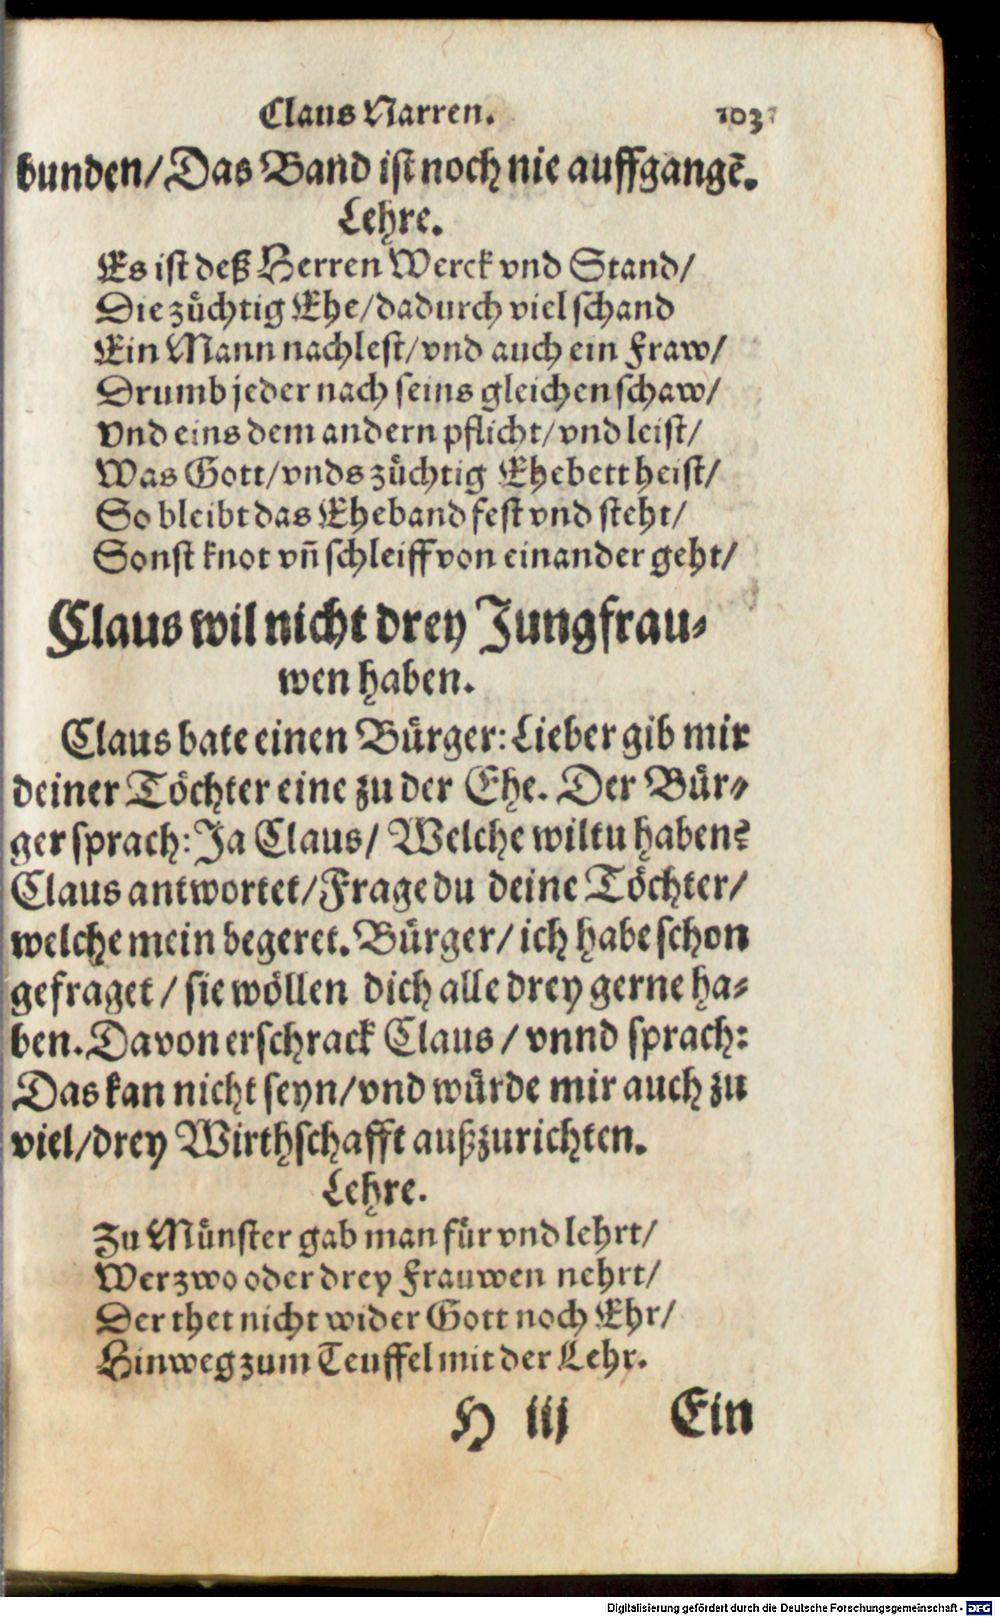 Claus Narren. 103
bunden/Das Band ist noch nie auffgangẽ.
Lehre.
Es ist deß Herren Werck vnd Stand/
Die züchtig Ehe/dadurch viel schand
Ein Mann nachlest/vnd auch ein Fraw/
Drumb jeder nach seins gleichen schaw/
Vnd eins dem andern pflicht/vnd leist/
Was Gott/vnds züchtig Ehebett heist/
So bleibt das Eheband fest vnd steht/
Sonst knot vñ schleiff von einander geht/
Claus wil nicht drey Jungfrau-
wen haben.
Claus bate einen Bürger: Lieber gib mir
deiner Töchter eine zu der Ehe. Der Bür-
ger sprach: Ja Claus/ Welche wiltu haben?
Claus antwortet/Frage du deine Töchter/
welche mein begeret. Bürger/ ich habe schon
gefraget / sie wöllen dich alle drey gerne ha-
ben. Davon erschrack Claus / vnnd sprach:
Das kan nicht seyn/vnd würde mir auch zu
viel/drey Wirthschafft außzurichten.
Lehre.
Zu Münster gab man für vnd lehrt/
Wer zwo oder drey Frauwen nehrt/
Der thet nicht wider Gott noch Ehr/
Hinweg zum Teuffel mit der Lehr.
H iij Ein
Digitalisierung gefördert durch die Deutsche Forschungsgemeinschaft - DFG